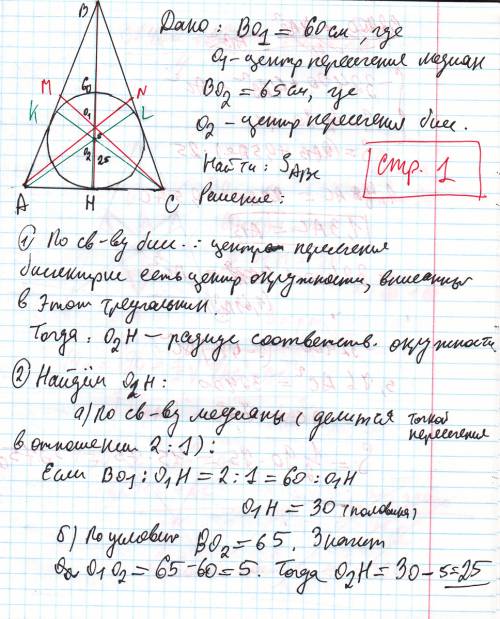 B
M
N
K
L
60
O₁
5
O₂
25
A
H
C
Дано: BO₁ = 60 см, где
O₁ - центр пересечения медиан
BO₂ = 65 см, где
O₂ - центр пересечения бис.
Найти: S ABC
Решение:
стр. 1
① По св-ву бис.: центр пересечения
биссектрис есть центр окружности, вписанный
в этот треугольник.
Тогда: O₂H - радиус соответств. окружности
② Найдём O₂H:
а) по св-ву медианы (делится точкой пересечения
в отношении 2:1):
Если BO₁ : O₁H = 2 : 1 = 60 : O₁H
O₁H = 30 (половина)
б) По условию BO₂ = 65. Значит
O₁O₂ = 65 - 60 = 5. Тогда O₂H = 30 - 5 = 25